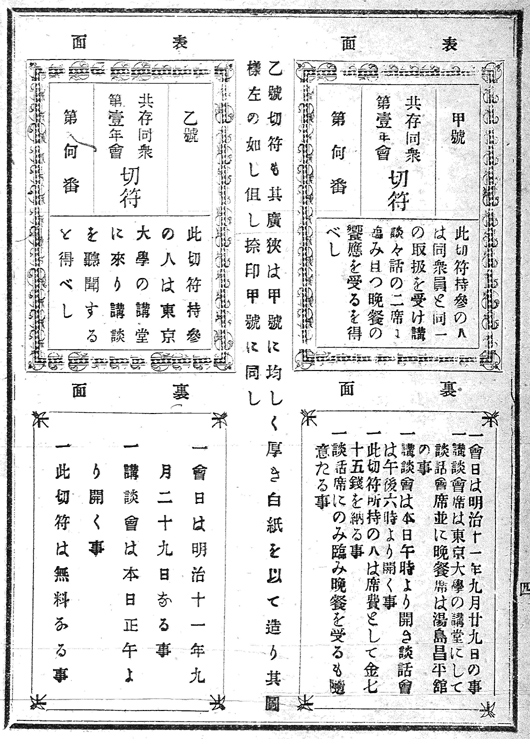 表面
甲號
共存同衆
第壹年會
切符
第何番
此切符持參の人
は同衆員と同一
の取扱を受け講
談々話の二席に
臨み且つ晩餐の
饗應を受るを得
べし
裏面
一會日は明治十一年九月廿九日の事
一講談會席は東京大學の講堂にして
談話會席並に晩餐席は湯島昌平館
の事
一講談會は本日午時より開き談話會
は午後六時より開く事
一此切符所持の人は席費として金七
十五錢を納る事
一談話席にのみ臨み晩餐を受るも隨
意たる事
乙號切符も其廣狹は甲號に均しく厚き白紙を以て造り其圖
樣左の如し但し捺印甲號に同し
表面
乙號
共存同衆
第壹年會
切符
第何番
此切符持參
の人は東京
大學の講堂
に來り講談
を聽聞する
と得べし
裏面
一會日は明治十一年九
月二十九日なる事
一講談會は本日正午よ
り開く事
一此切符は無料なる事
四